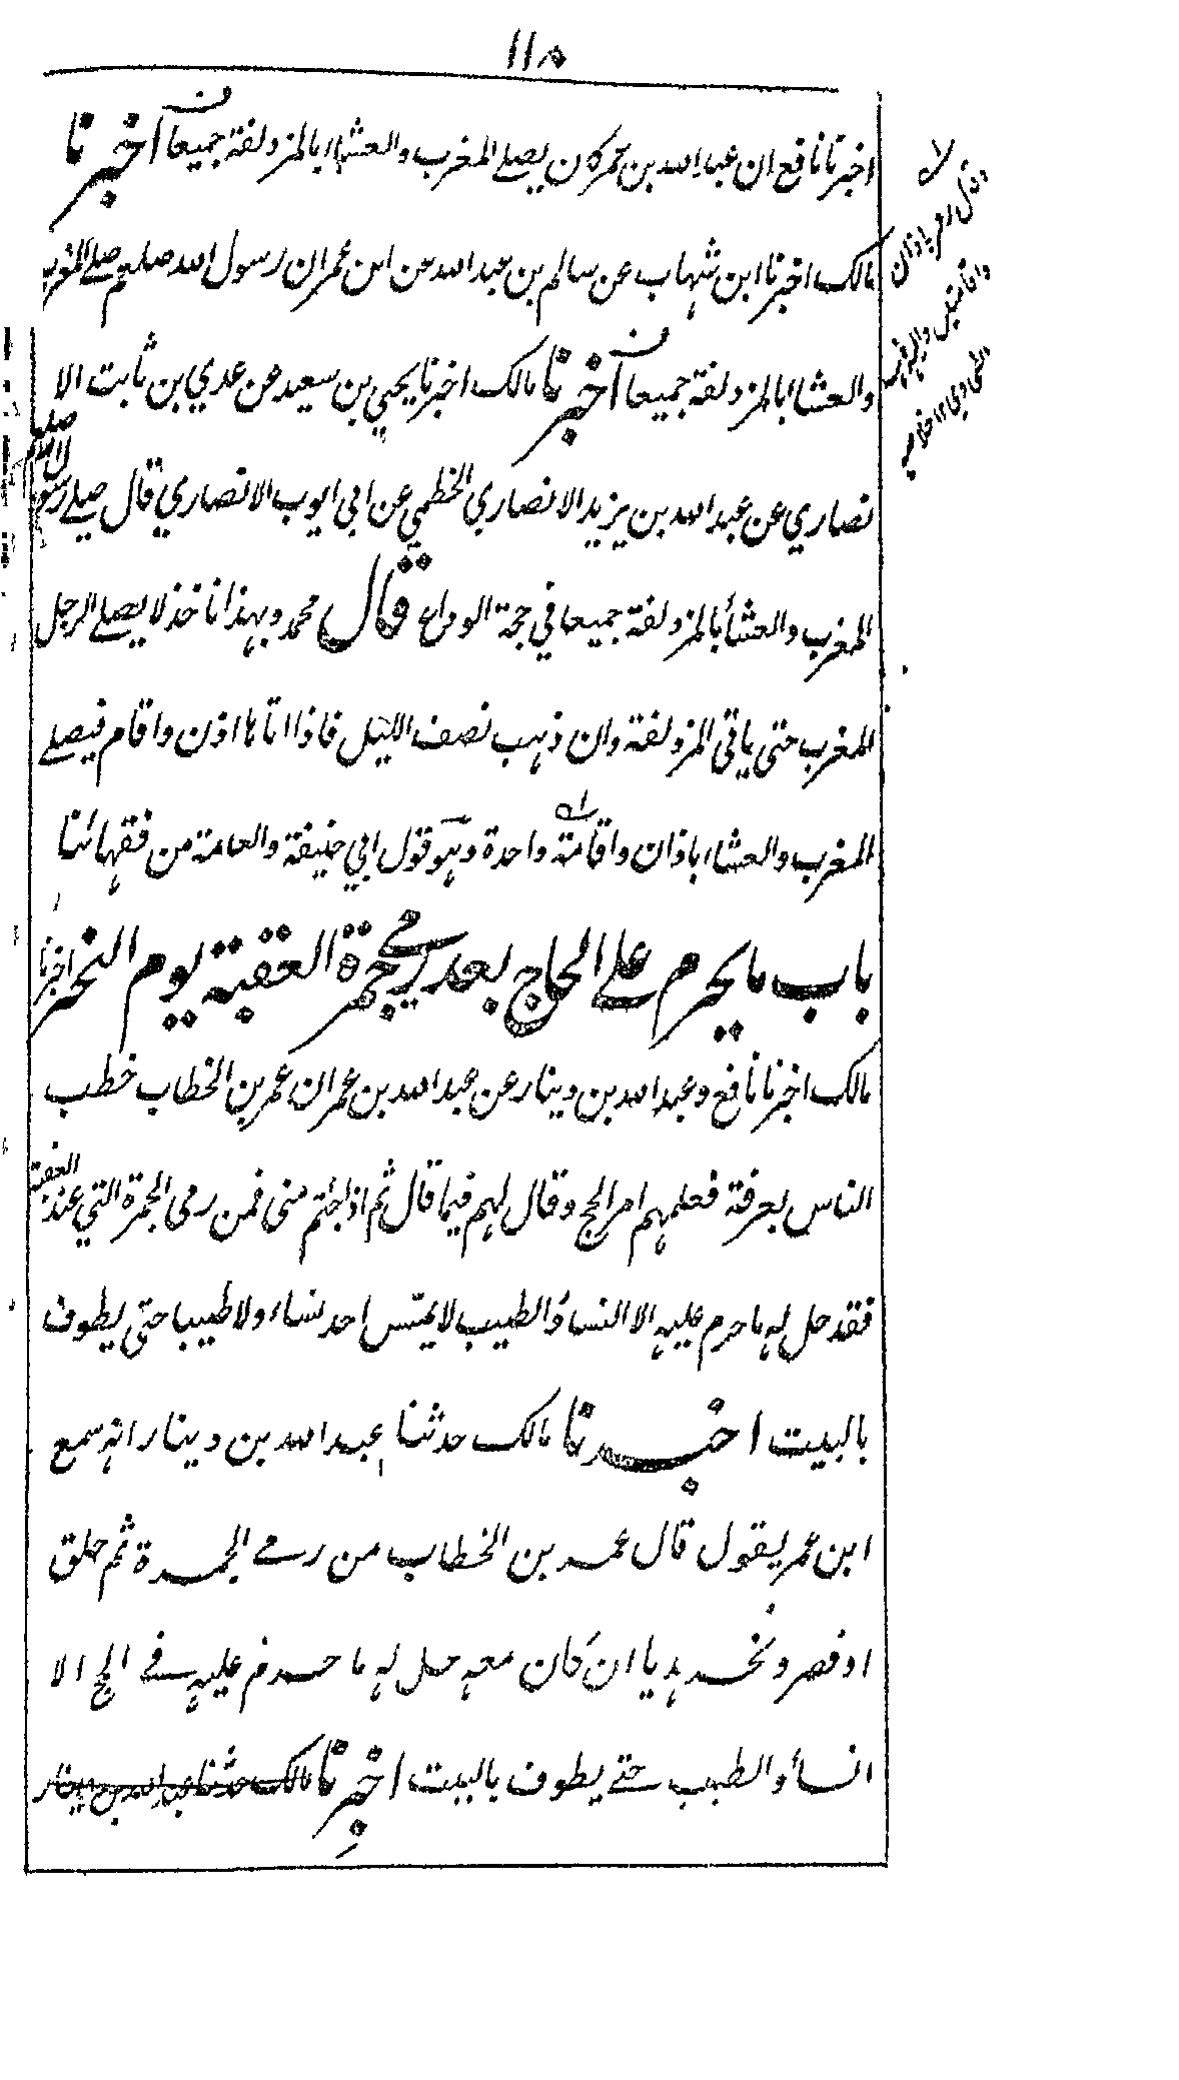 ١١٥
اخبرنا نافع ان عبد الله بن عمر كان يصلي المغرب والعشاء بالمزدلفة جميعا اخبرنا
مالك اخبرنا ابن شهاب عن سالم بن عبد الله عن ابن عمر ان رسول الله صلعم صلے المغرب
والعشاء بالمزدلفة جميعا اخبرنا مالك اخبرنا يحيي بن سعيد عن عدي بن ثابت الا
نصاري عن عبد الله بن يزيد الانصاري الخطمي عن ابي ايوب الانصاري قال صلے رسول الله صلعم
المغرب والعشاء بالمزدلفة جميعا في حجة الوداع قال محمد وبهذا ناخذ لا يصلے الرجل
المغرب حتى ياتي المزدلفة وان ذهب نصف الليل فاذا اتاها اذن واقام فيصلے
المغرب والعشاء باذان واقامة واحدة وهو قول ابي حنيفة والعامة من فقهائنا
باب ما يحرم على الحاج بعد رمي جمرة العقبة يوم النحر اخبرنا
مالك اخبرنا نافع وعبد الله بن دينار عن عبد الله بن عمر ان عمر بن الخطاب خطب
الناس بعرفة فعلمهم امر الحج وقال لهم فيما قال ثم اذا جئتم منى فمن رمى الجمرة التي عند العقبة
فقد حل له ما حرم عليه الا النساء والطيب لا يمس احد نساء ولا طيبا حتى يطوف
بالبيت اخبرنا مالك حدثنا عبد الله بن دينار انه سمع
ابن عمر يقول قال عمر بن الخطاب من رمے الجمرة ثم حلق
او قصر ونحر هديا ان كان معه حل له ما حرم عليه في الحج الا
النساء والطيب حتے يطوف بالبيت اخبرنا مالك حدثنا عبد الله بن دينار